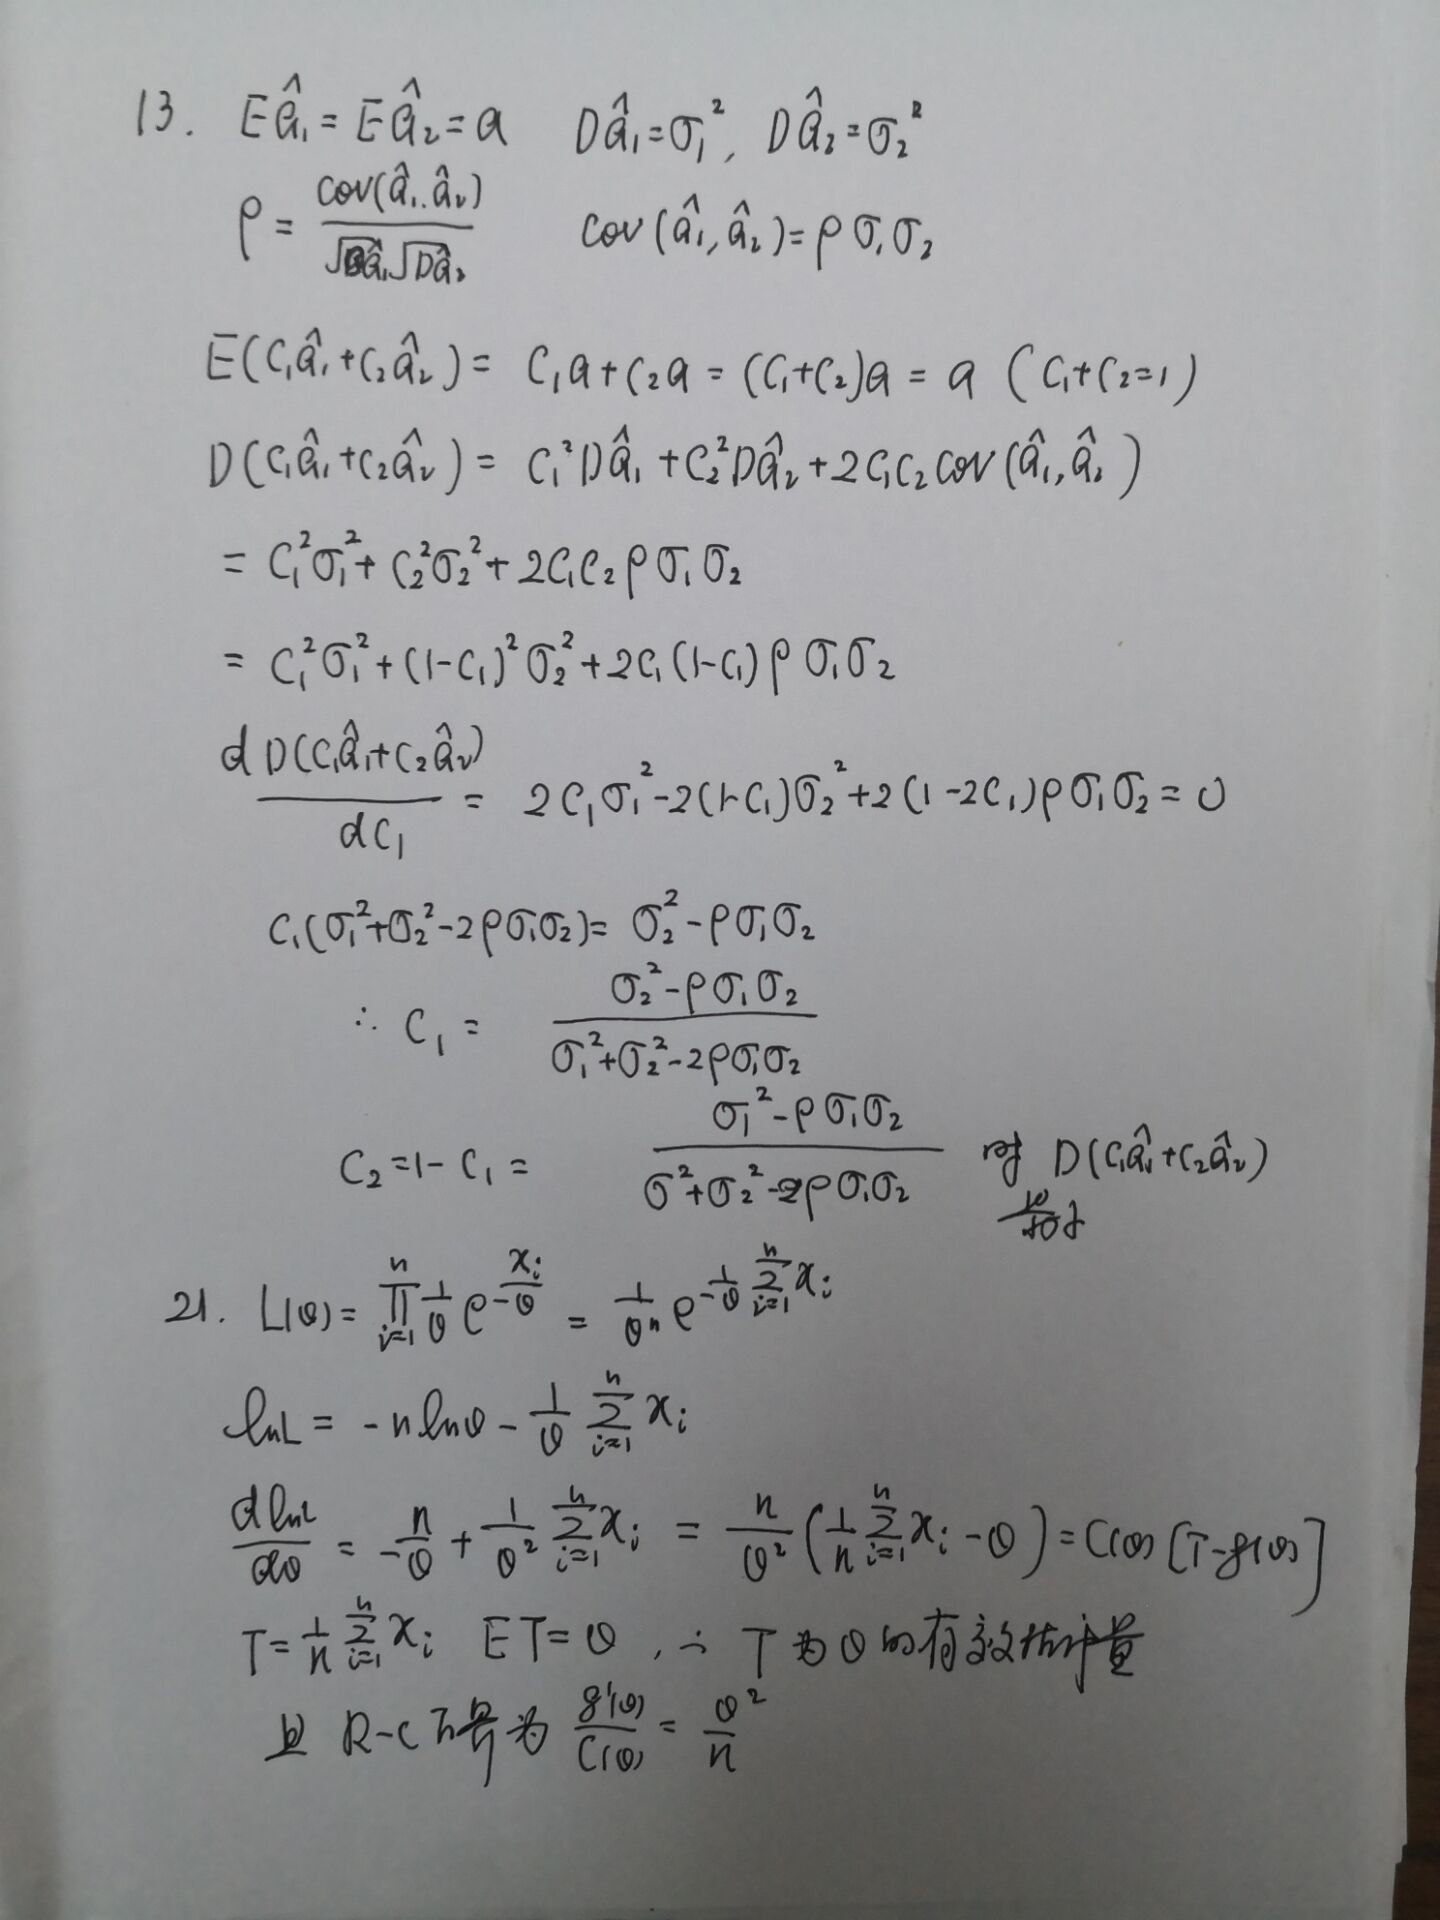 13. Eâ₁ = Eâ₂ = a Dâ₁ = σ₁², Dâ₂ = σ₂²
ρ = cov(â₁, â₂) / √Dâ₁ √Dâ₂ cov(â₁, â₂) = ρσ₁σ₂
E(C₁â₁ + C₂â₂) = C₁a + C₂a = (C₁ + C₂)a = a (C₁ + C₂ = 1)
D(C₁â₁ + C₂â₂) = C₁²Dâ₁ + C₂²Dâ₂ + 2C₁C₂cov(â₁, â₂)
= C₁²σ₁² + C₂²σ₂² + 2C₁C₂ρσ₁σ₂
= C₁²σ₁² + (1-C₁)²σ₂² + 2C₁(1-C₁)ρσ₁σ₂
dD(C₁â₁ + C₂â₂) / dC₁ = 2C₁σ₁² - 2(1-C₁)σ₂² + 2(1-2C₁)ρσ₁σ₂ = 0
C₁(σ₁² + σ₂² - 2ρσ₁σ₂) = σ₂² - ρσ₁σ₂
∴ C₁ = (σ₂² - ρσ₁σ₂) / (σ₁² + σ₂² - 2ρσ₁σ₂)
C₂ = 1 - C₁ = (σ₁² - ρσ₁σ₂) / (σ² + σ₂² - 2ρσ₁σ₂) 时 D(C₁â₁ + C₂â₂)
21. L(θ) = ∏ᵢ₌₁ⁿ 1/θ e^(xᵢ/-θ) = 1/θⁿ e^(-1/θ ∑ᵢ₌₁ⁿ xᵢ)
lnL = -n lnθ - 1/θ ∑ᵢ₌₁ⁿ xᵢ
dlnL/dθ = -n/θ + 1/θ² ∑ᵢ₌₁ⁿ xᵢ = n/θ² (1/n ∑ᵢ₌₁ⁿ xᵢ - θ) = C(θ)[T - g(θ)]
T = 1/n ∑ᵢ₌₁ⁿ xᵢ ET = θ, ∴ T为θ的有效估计量
且 R-C下界为 g'(θ)/C(θ) = θ²/n